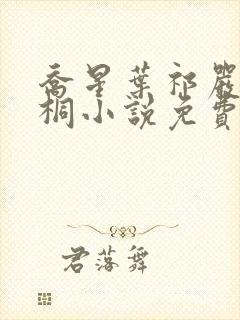 喬星葉祁嚴
桐小說免費
君落舞